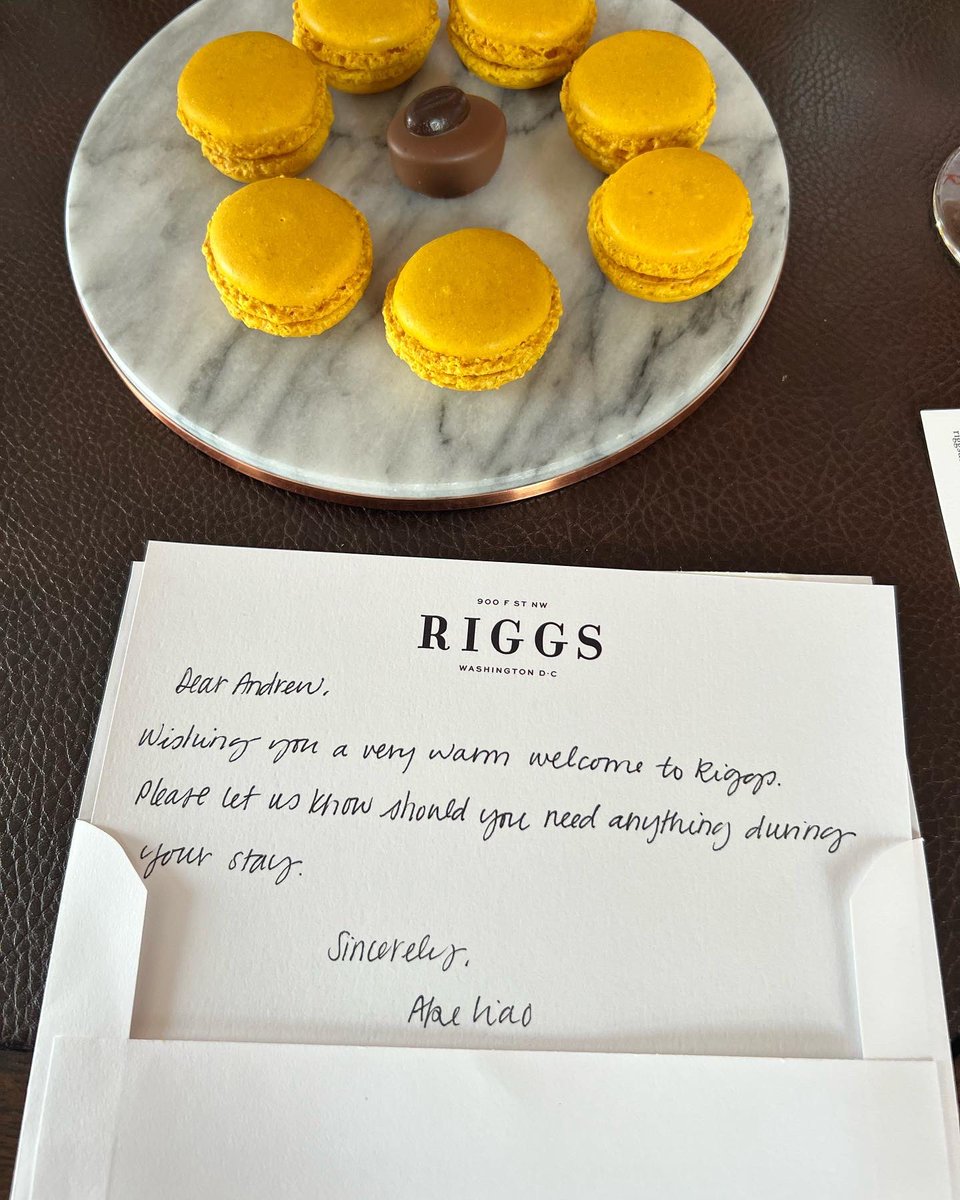 900 F ST NW
RIGGS
WASHINGTON D·C
Dear Andrew,
Wishing you a very warm welcome to Riggs.
Please let us know should you need anything during
your stay.
Sincerely,
Liao